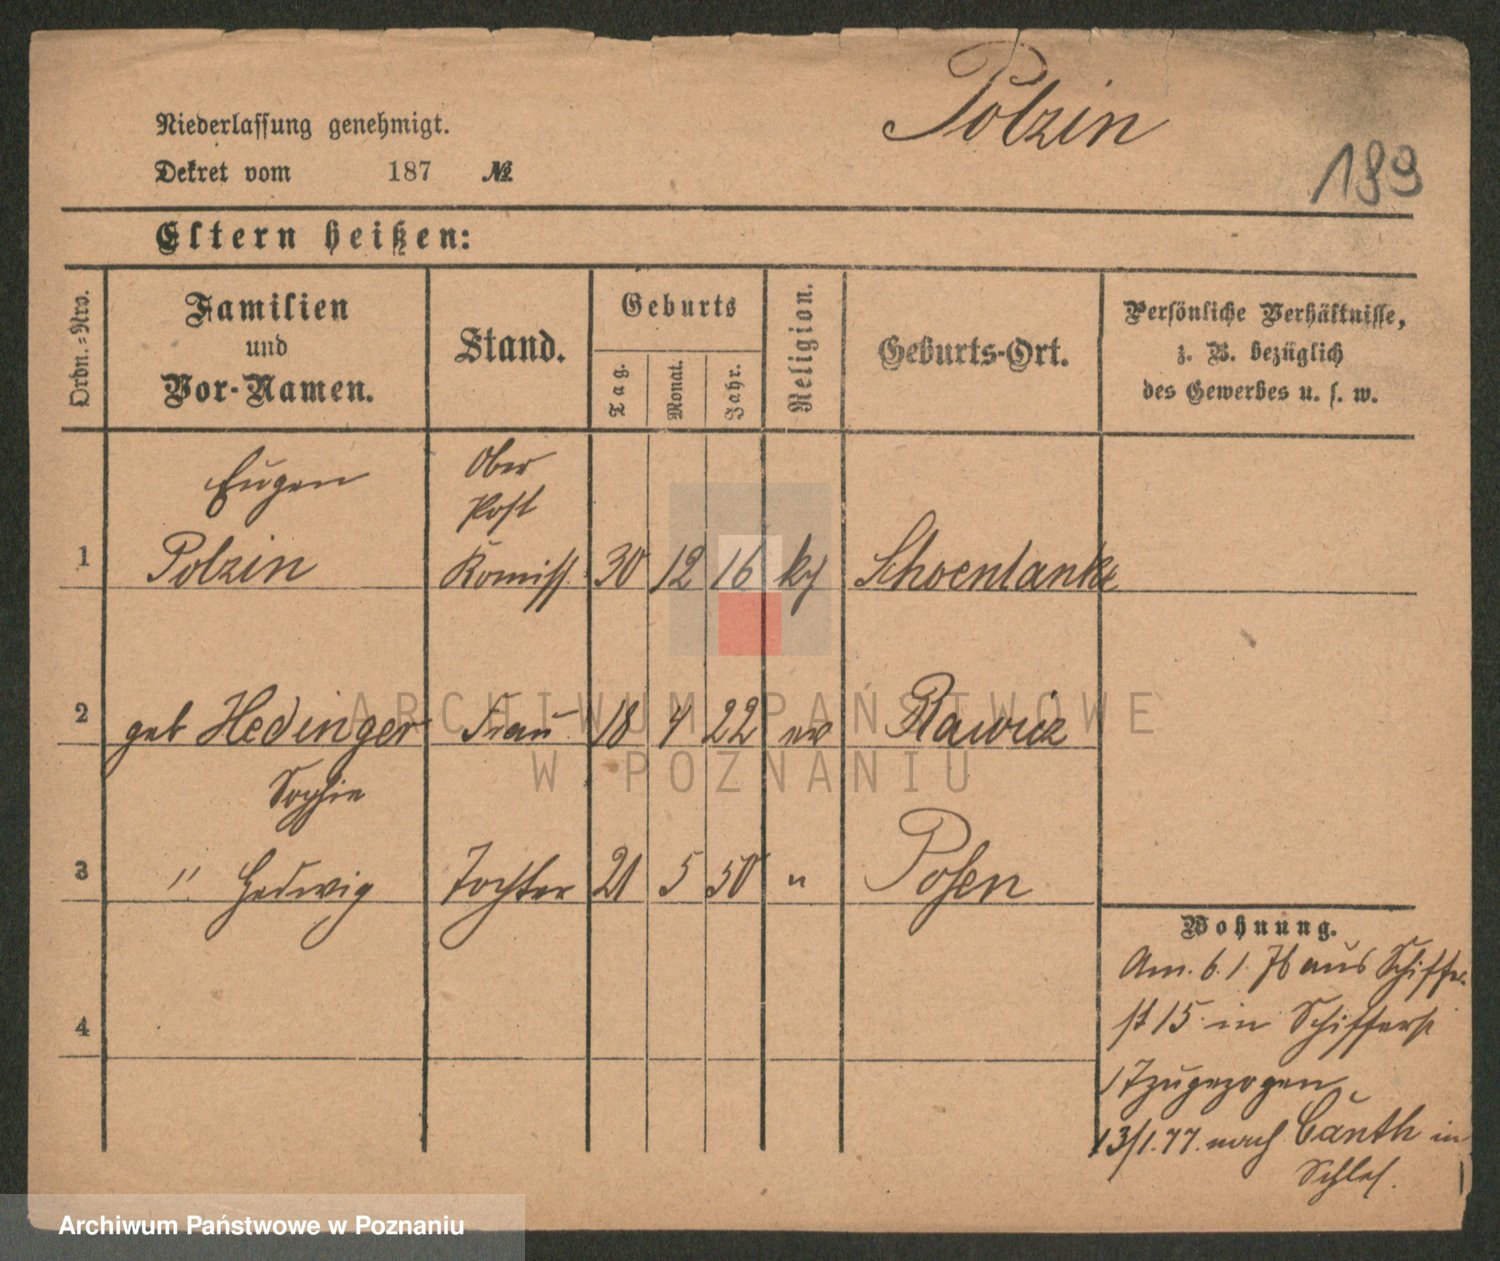 Polzin
Niederlassung genehmigt.
Dekret vom 187 №
199
Eltern heißen:
Ordn.-Nro.
Familien
und
Vor-Namen.
Stand.
Geburts
Tag.
Monat.
Jahr.
Religion.
Geburts-Ort.
Persönliche Verhältnisse,
z. B. bezüglich
des Gewerbes u. s. w.
Eugen Ober
Post
1 Polzin Komiss. 30 12 16 kg Schoenlanke
2 geb Hedinger Frau 18 4 22 ev Rawicz
Sophie
3 " Hedwig Tochter 21 5 50 " Posen
4
Wohnung.
Am. 6. 1. 76 aus Schiffer
st 15 in Schifferst
17 zugezogen
13/1.77. nach Canth in
Schles.
ARCHIWUM PAŃSTWOWE
W POZNANIU
Archiwum Państwowe w Poznaniu